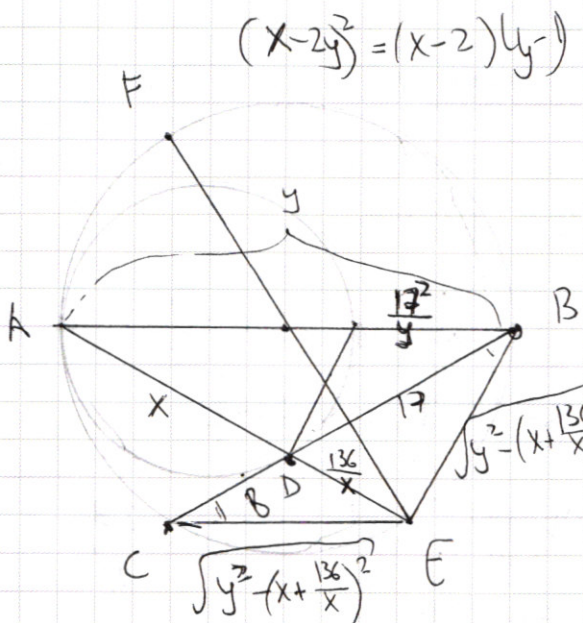 (x-2y)² = (x-2)(y-1)
F
y
A
17²/y
B
x
17
√y²-(x+136/x
136/x
8
D
C
E
√y²-(x+136/x)²